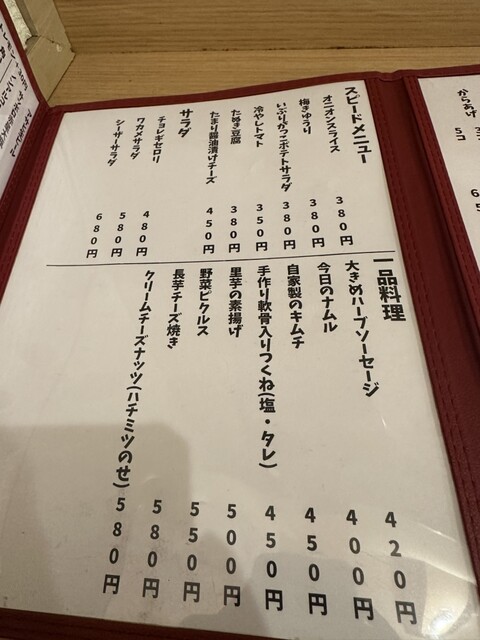 スピードメニュー
オニオンスライス 380円
梅きゅうり 380円
いぶりがっこポテトサラダ 380円
冷やしトマト 350円
たぬき豆腐 380円
たまり醤油漬けチーズ 450円
サラダ
チョレギセロリ 480円
ワカメサラダ 580円
シーザーサラダ 680円
一品料理
大きめハーブソーセージ 420円
今日のナムル 400円
自家製のキムチ 450円
手作り軟骨入りつくね(塩・タレ) 450円
里芋の素揚げ 500円
野菜ピクルス 550円
長芋チーズ焼き 580円
クリームチーズナッツ(ハチミツのせ) 580円
からあげ 5コ